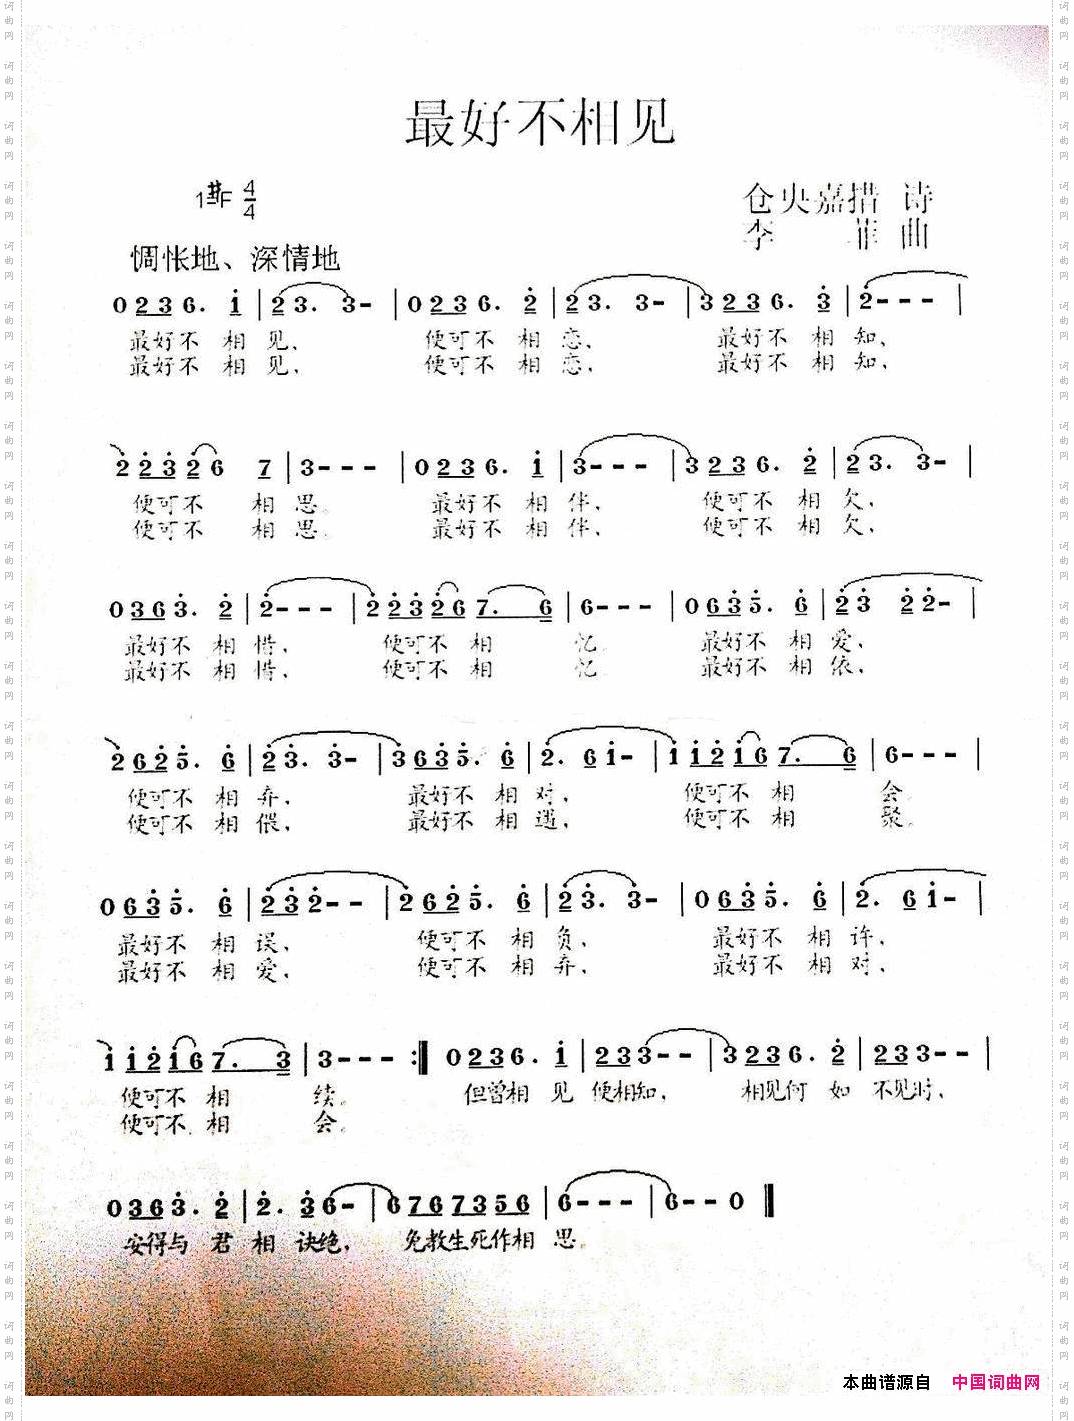 最好不相见
1=#F 4/4
仓央嘉措 诗
李 菲 曲
惆怅地、深情地
0 2 3 6. i | 2 3. 3 - | 0 2 3 6. 2 | 2 3. 3 - | 3 2 3 6. 3 | 2 - - - |
最好不 相 见, 便可不 相 恋, 最好不 相 知,
最好不 相 见, 便可不 相 恋, 最好不 相 知,
2 2 3 2 6 7 | 3 - - - | 0 2 3 6. i | 3 - - - | 3 2 3 6. 2 | 2 3. 3 - |
便可不 相 思。 最好不 相 伴, 便可不 相 欠,
便可不 相 思。 最好不 相 伴, 便可不 相 欠,
0 3 6 3. 2 | 2 - - - | 2 2 3 2 6 7. 6 | 6 - - - | 0 6 3 5. 6 | 2 3 2 2 - |
最好不 相 惜, 便可不 相 忆。 最好不 相 爱,
最好不 相 惜, 便可不 相 忆。 最好不 相 依,
2 6 2 5. 6 | 2 3. 3 - | 3 6 3 5. 6 | 2. 6 i - | i i 2 i 6 7. 6 | 6 - - - |
便可不 相 弃, 最好不 相 对, 便可不 相 会。
便可不 相 偎, 最好不 相 遇, 便可不 相 聚。
0 6 3 5. 6 | 2 3 2 - - | 2 6 2 5. 6 | 2 3. 3 - | 0 6 3 5. 6 | 2. 6 i - |
最好不 相 误, 便可不 相 负, 最好不 相 许,
最好不 相 爱, 便可不 相 弃, 最好不 相 对,
i i 2 i 6 7. 3 | 3 - - - :| 0 2 3 6. i | 2 3 3 - - | 3 2 3 6. 2 | 2 3 3 - - |
便可不 相 续。 但曾相 见 便相知, 相见何 如 不见时,
便可不 相 会。
0 3 6 3. 2 | 2. 3 6 - | 6 7 6 7 3 5 6 | 6 - - - | 6 - - 0 ‖
安得与 君 相 诀绝, 免教生死作相 思。
本曲谱源自 中国词曲网